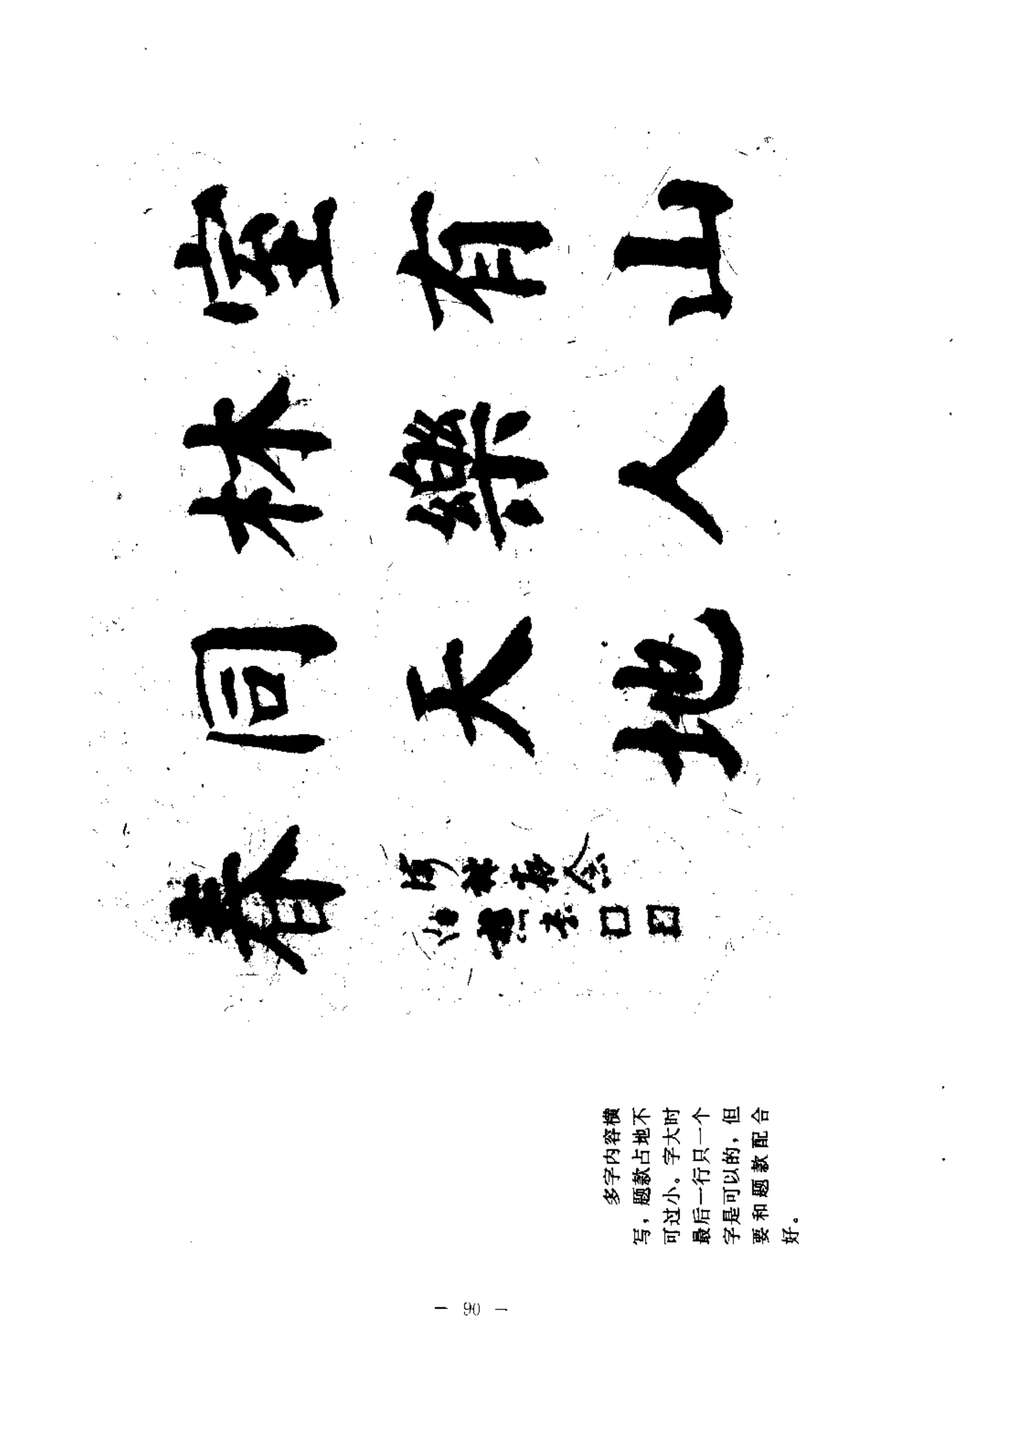 室有山
林樂人
同天地
春
多字内容横
写，题款占地不
可过小。字大时
最后一行只一个
字是可以的，但
要和题款配合
好。
— 90 —